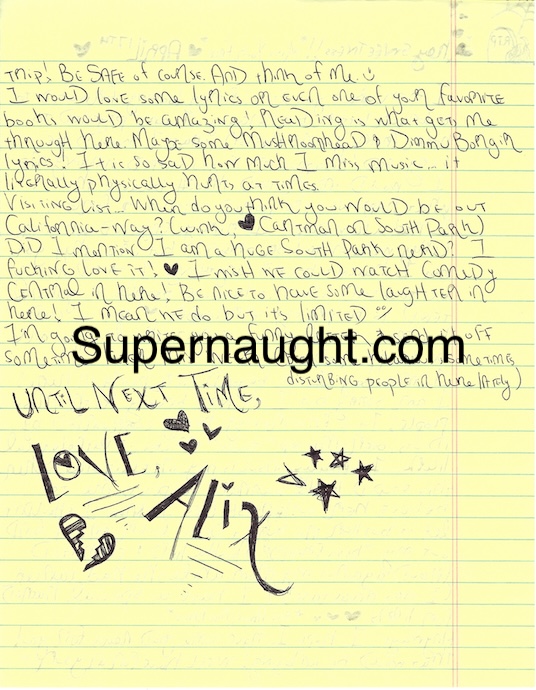 TRIP! BE SAFE of COURSE. AND think of ME.
I WOULD LOVE SOME lyRiCS OR EVEN ONE of YOUR FAVORITE
books WOULD bE AMAZING! READING is WHAT gETS ME
thROUGH hERE. MAYbE SOME MUSHROOMhEAD & DIMMU BORGIR
lyRiCS! It is SO SAD hOW MUCh I MISS MUSIC... it
litERAlly phYSiCAlly hURTS AT TiMES.
VISITING LIST... WhEN do YOU thiNk YOU WOULD bE OUT
CAlifORNiA-WAY? (WiNk, CARTMAN ON SOUTH PARk)
DiD I MENTiON I AM A hUGE SOUTH PARK NERD? I
fUCkiNG lOVE it! I WiSh WE COUlD WATCh COMEDY
CENTRAL iN hERE! BE NiCE to hAVE SOME lAUGhTER iN
hERE! I MEAN WE dO bUT it's liMiTED
I'M
SOMETIMES
diSTURbiNG pEOplE iN hERE lATEly)
UNTIL NEXT TIME,
LOVE,
ALIX
Supernaught.com